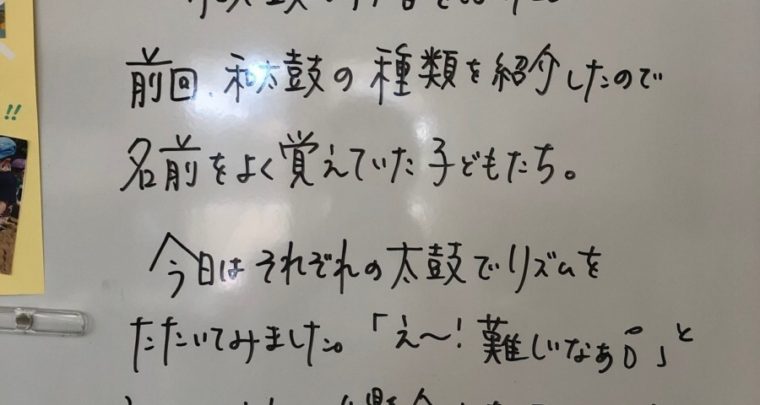 前回、和太鼓の種類を紹介したので
名前をよく覚えていた子どもたち。
今日はそれぞれの太鼓でリズムを
たたいてみました。「え〜!難しいなぁ」と
!!